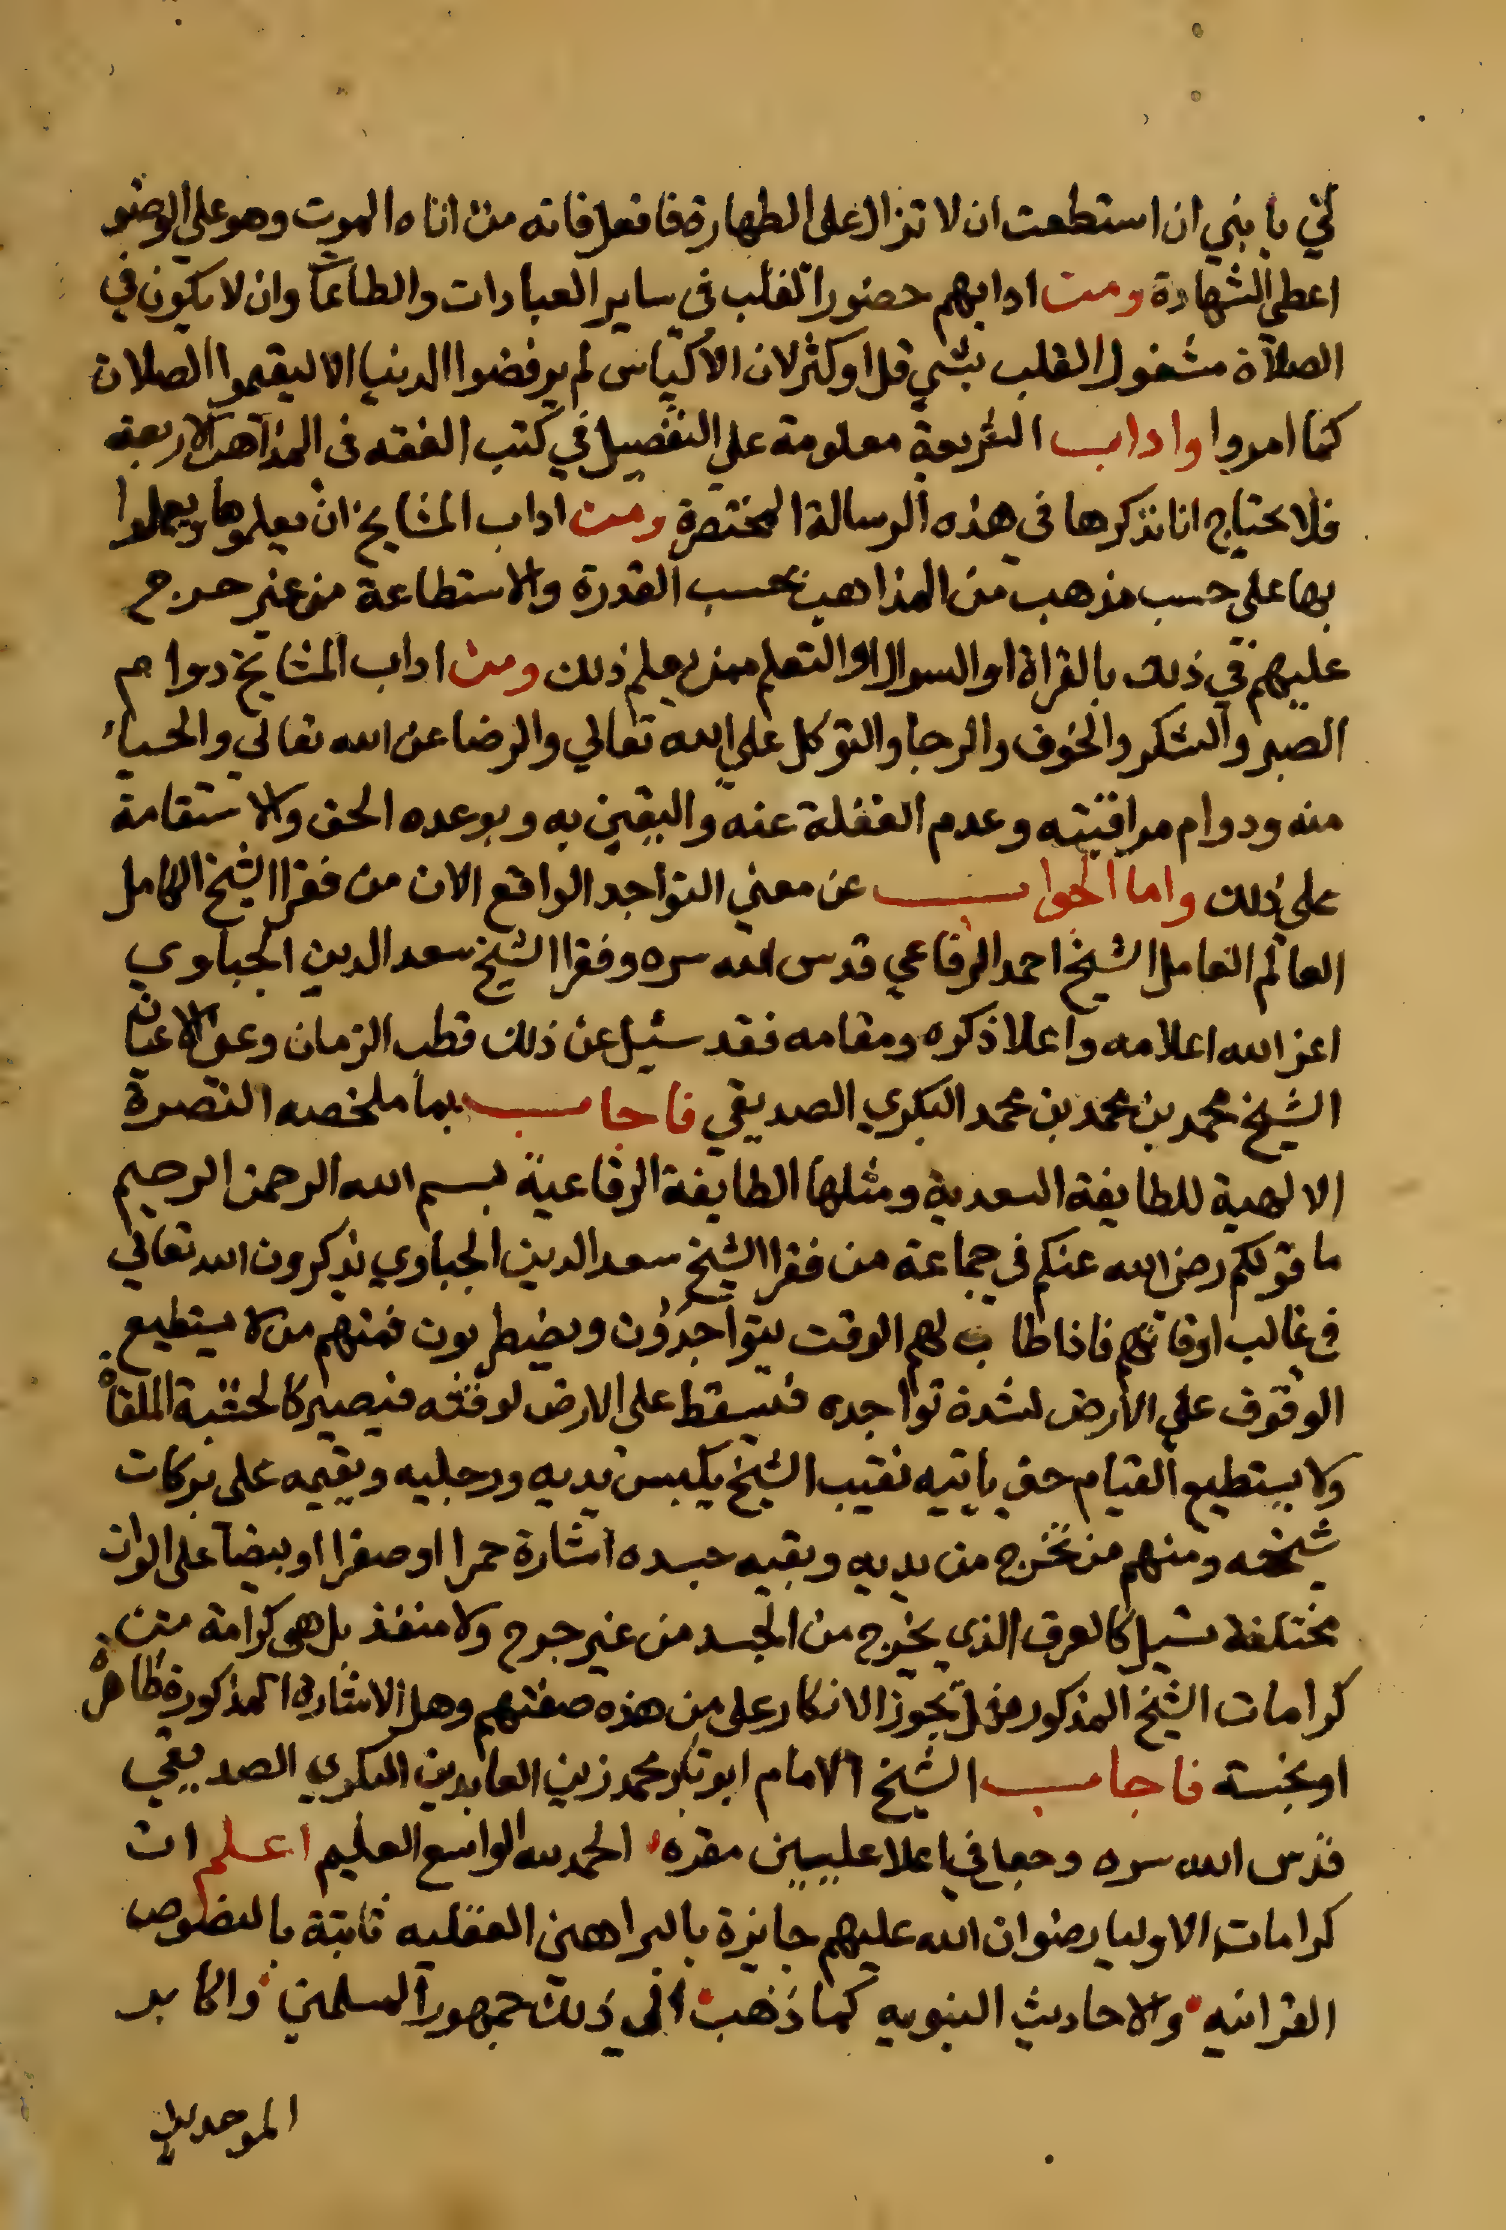 لي يا بني ان استطعت ان لا تزال على الطهارة فافعل فانه من اتاه الموت وهو على الوضو
اعطي الشهادة ومن ادابهم حضور القلب في ساير العبادات والطاعا وان لا يكون في
الصلاة مشغول القلب بشي قل او كثر لان الاكياس لم يرفضوا الدنيا الا ليقيموا الصلاة
كما امروا واداب الشريعة معلومة على التفصيل في كتب الفقه في المذاهب الاربعة
فلا يحتاج انا نذكرها في هذه الرسالة المختصرة ومن اداب المشايخ ان يعلموها ويعملوا
بها على حسب مذهب من المذاهب بحسب القدرة والاستطاعة من غير حرج
عليهم في ذلك بالقراة او السوال او التعلم ممن يعلم ذلك ومن اداب المشايخ دوام
الصبر والشكر والخوف والرجا والتوكل على الله تعالي والرضا عن الله تعالى والحياء
منه ودوام مراقبته وعدم الغفلة عنه واليقين به وبوعده الحق والاستقامة
على ذلك واما الجواب عن معني التواجد الواقع الان من فقرا الشيخ الكامل
العالم العامل الشيخ احمد الرفاعي قدس الله سره وفقرا الشيخ سعد الدين الجباوي
اعز الله اعلامه واعلا ذكره ومقامه فقد سئيل عن ذلك قطب الزمان وعين الاعيان
الشيخ محمد بن محمد بن محمد البكري الصديقي فاجاب بما ملخصه النصرة
الالهية للطايفة السعدية ومثلها الطايفة الرفاعية بسم الله الرحمن الرحيم
ما قولكم رضي الله عنكم في جماعة من فقرا الشيخ سعد الدين الجباوي يذكرون الله تعالي
في غالب اوقاتهم فاذا طاب لهم الوقت يتواجدون ويضطربون فمنهم من لا يستطيع
الوقوف على الارض لشدة تواجده فيسقط على الارض لوقته فيصير كالخشبة الملقاة
ولا يستطيع القيام حتى ياتيه نقيب الشيخ يكبس يديه ورجليه ويقيمه على بركات
شيخه ومنهم من يخرج من يديه وبقيه جسده اشارة حمرا او صفرا او بيضا على الوان
مختلفة تسيل كالعرق الذي يخرج من الجسد من غير جرح ولا منفذ بل هي كرامة من
كرامات الشيخ المذكور فهل يجوز الانكار على من هذه صفتهم وهل الاشارة المذكورة طاهرة
او نجسة فاجاب الشيخ الامام ابو بكر محمد زين العابدين البكري الصديقي
قدس الله سره وجعل في اعلا عليين مقره الحمد لله الواسع العليم اعلم ان
كرامات الاوليا رضوان الله عليهم جايزة بالبراهين العقليه ثابتة بالنصوص
القرانيه والاحاديث النبويه كما ذهب الى ذلك جمهور المسلمين واكابر
الموحدين